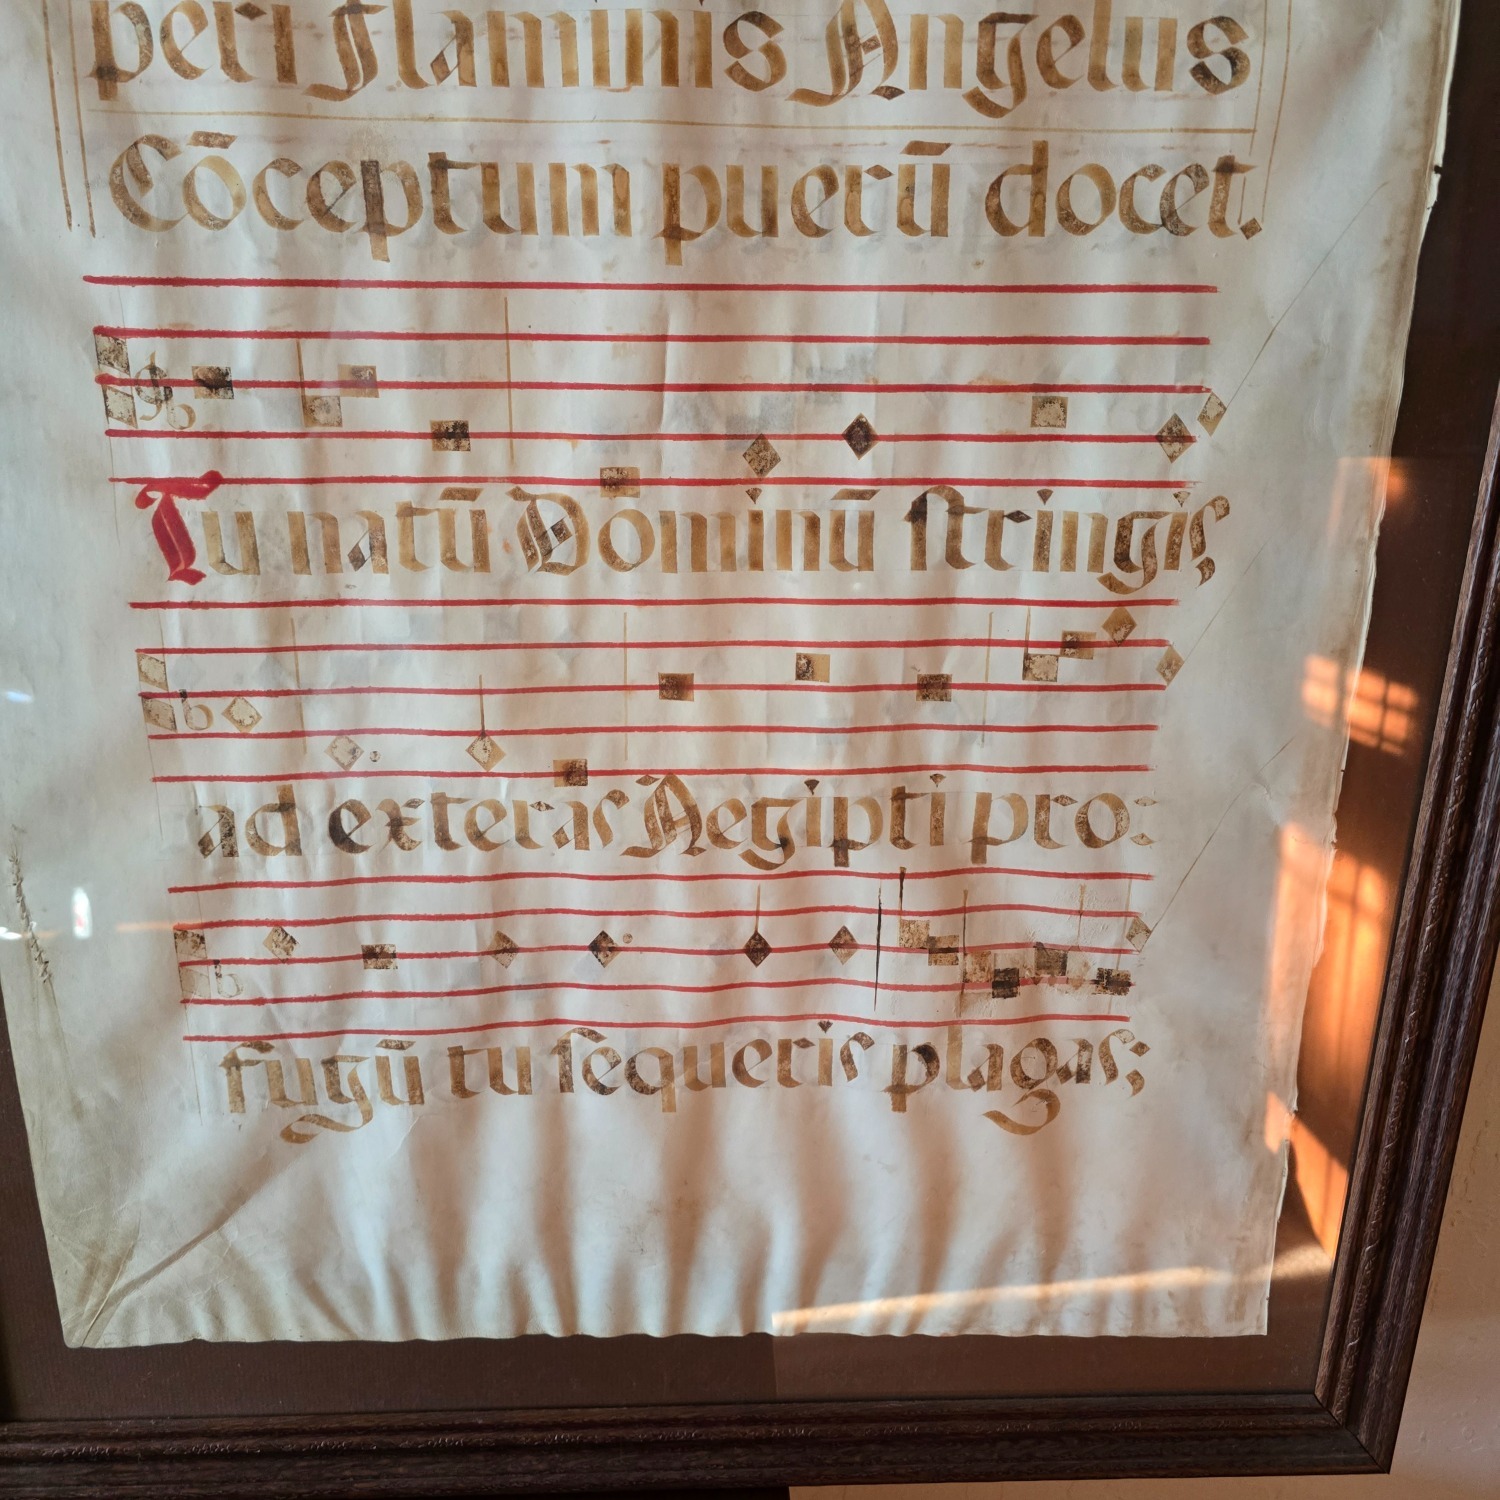 peri Flaminis Angelus
Cōceptum puerū docet.
Tu natū Dōminū stringis,
ad exteras Aegipti pro:
fugū tu sequeris plagas;